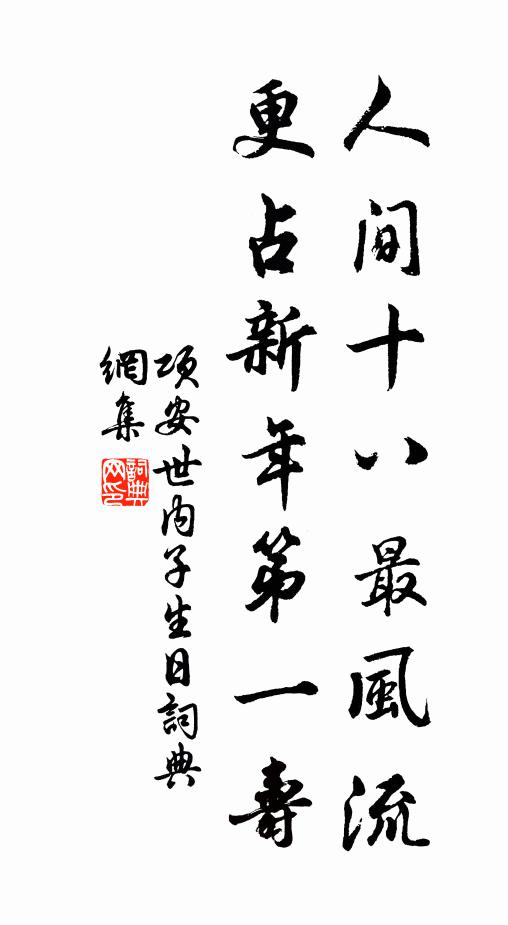 人間十八最風流
更占新年第一壽
項安世內子生日詞典
網集
詞典
网印